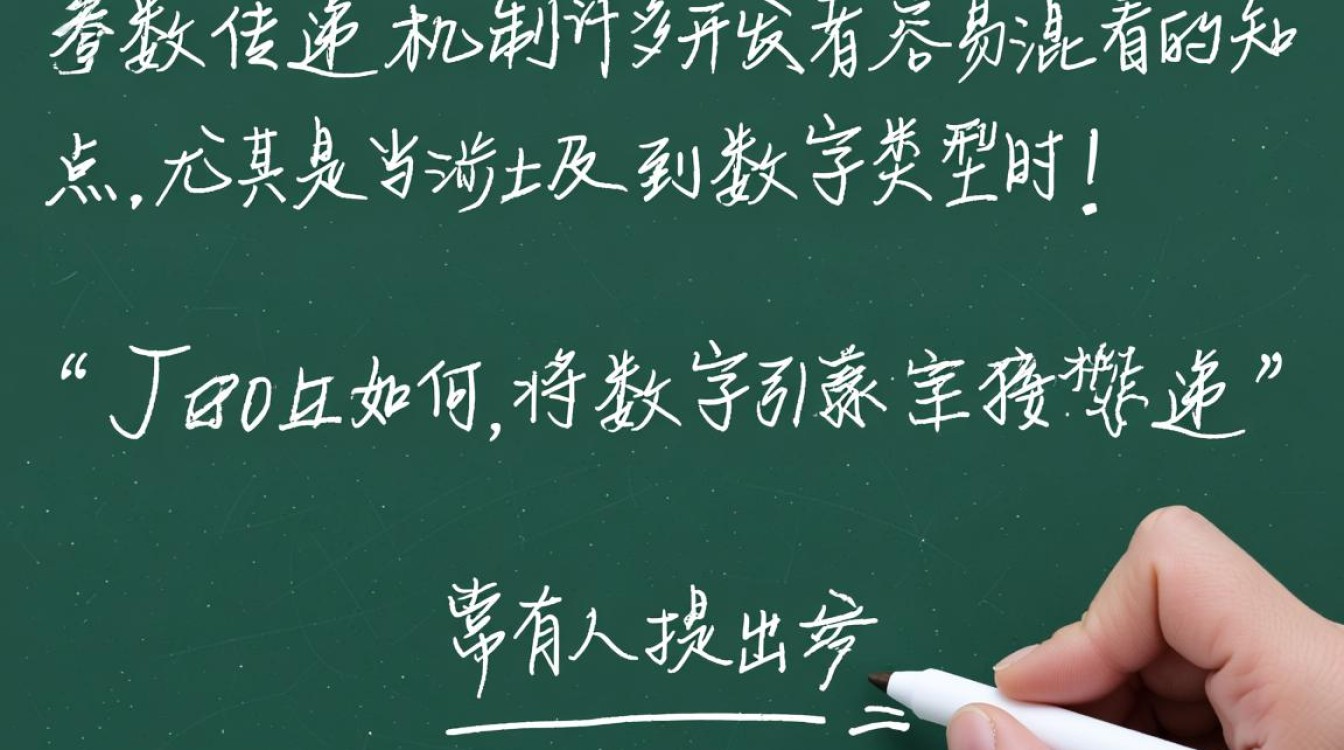 参数传递机制许多开发者容易混着的知
点,尤其是当涉及到数字类型时!
“J 如何,将数字引 接 递”
常有人提出